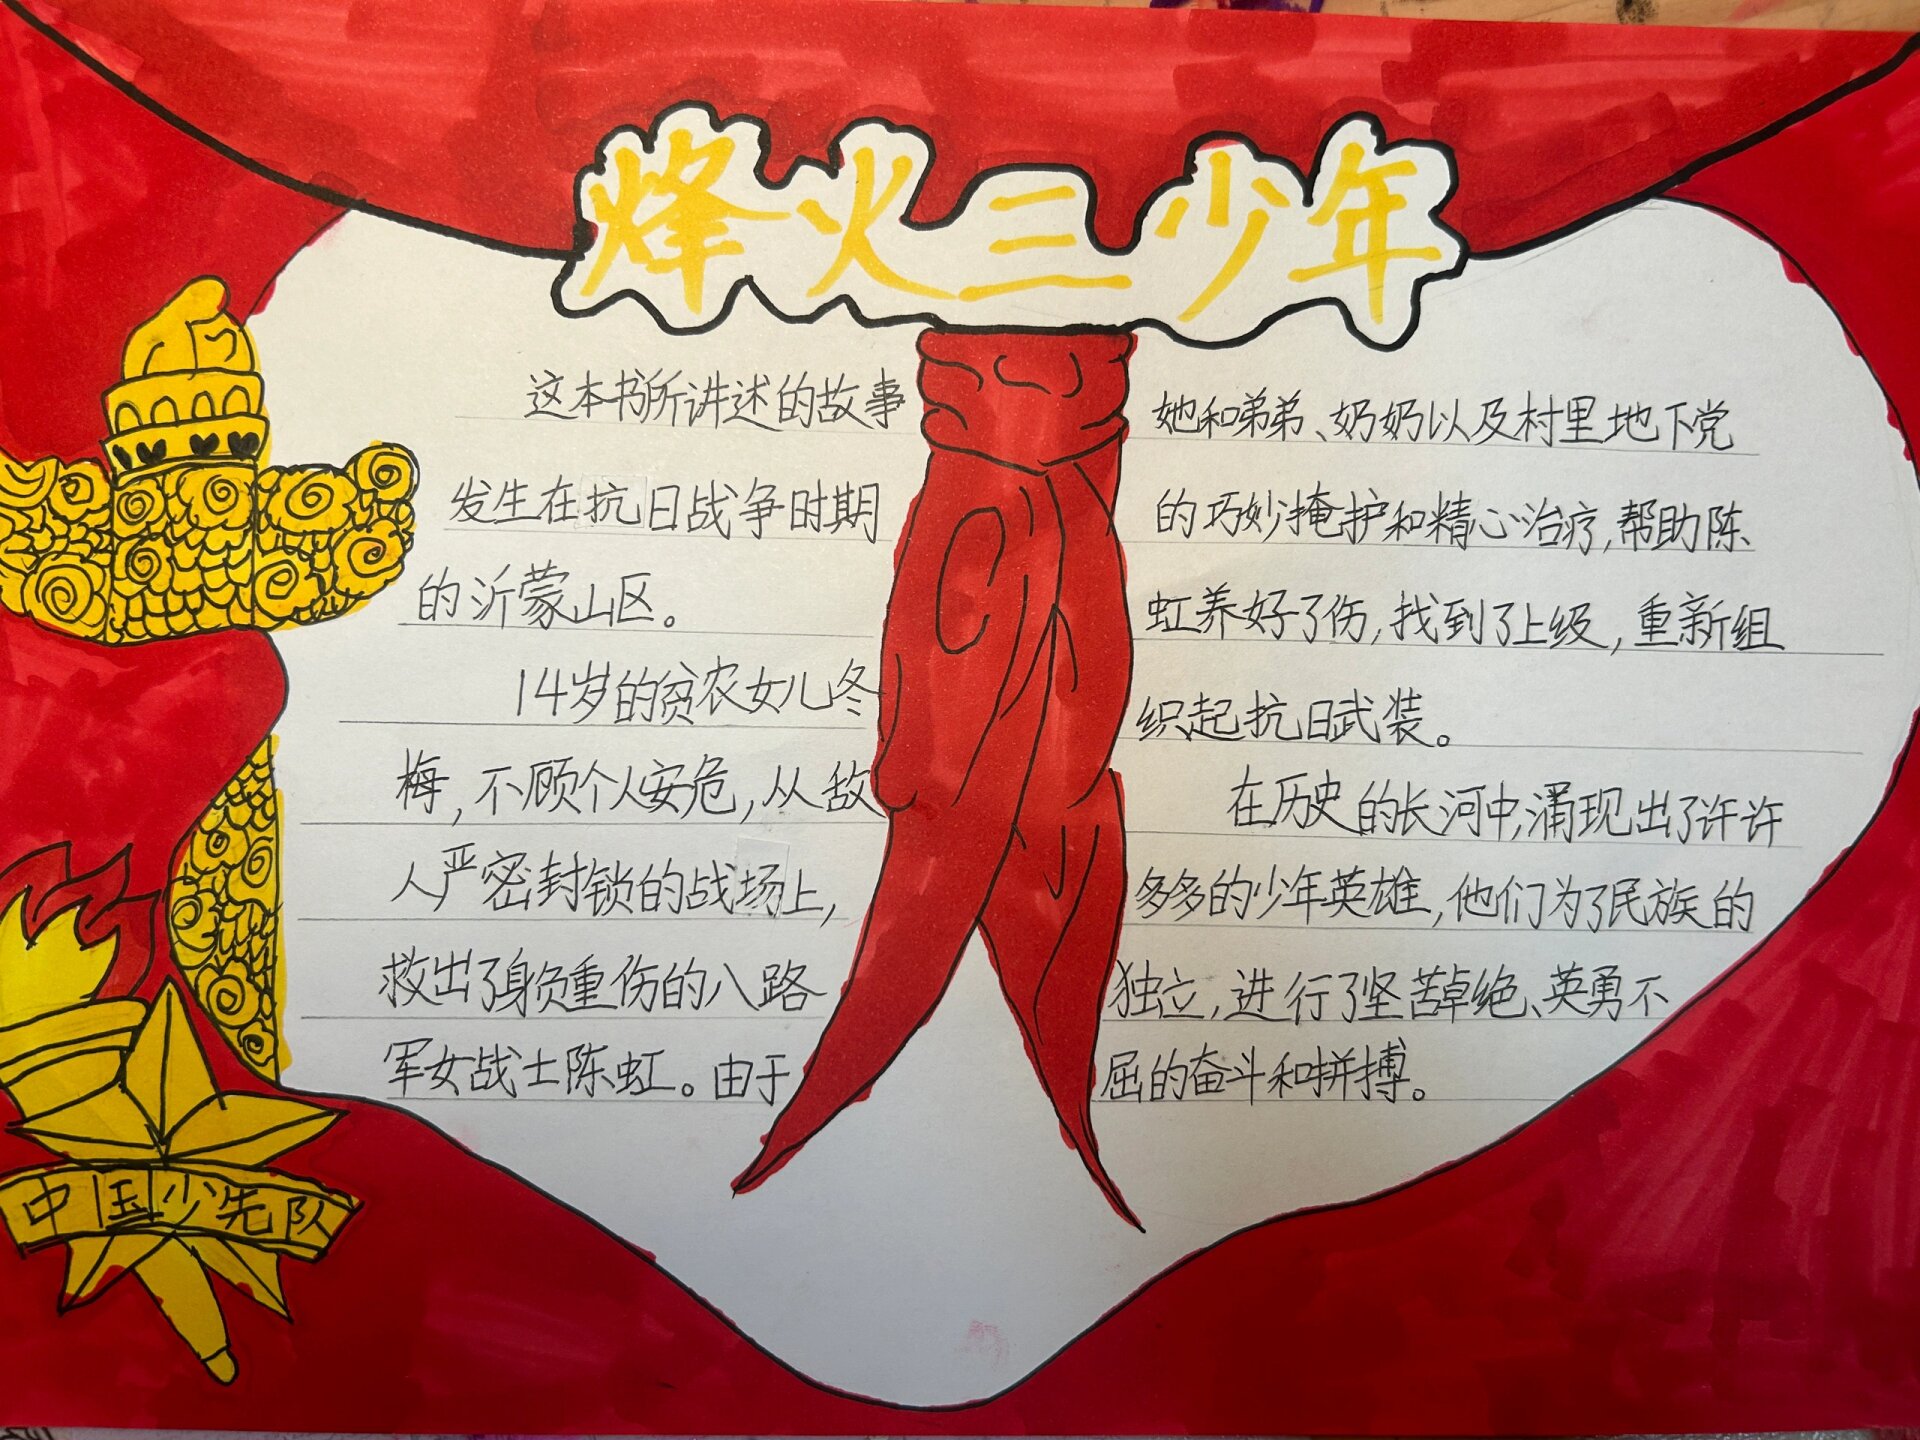 烽火三少年
这本书所讲述的故事
发生在抗日战争时期
的沂蒙山区。
14岁的贫农女儿冬
梅,不顾个人安危,从敌
人严密封锁的战场上,
救出了身负重伤的八路
军女战士陈虹。由于
她和弟弟、奶奶以及村里地下党
的巧妙掩护和精心治疗,帮助陈
虹养好了伤,找到了上级,重新组
织起抗日武装。
在历史的长河中,涌现出了许许
多多的少年英雄,他们为了民族的
独立,进行了坚苦卓绝、英勇不
屈的奋斗和拼搏。
中国少先队